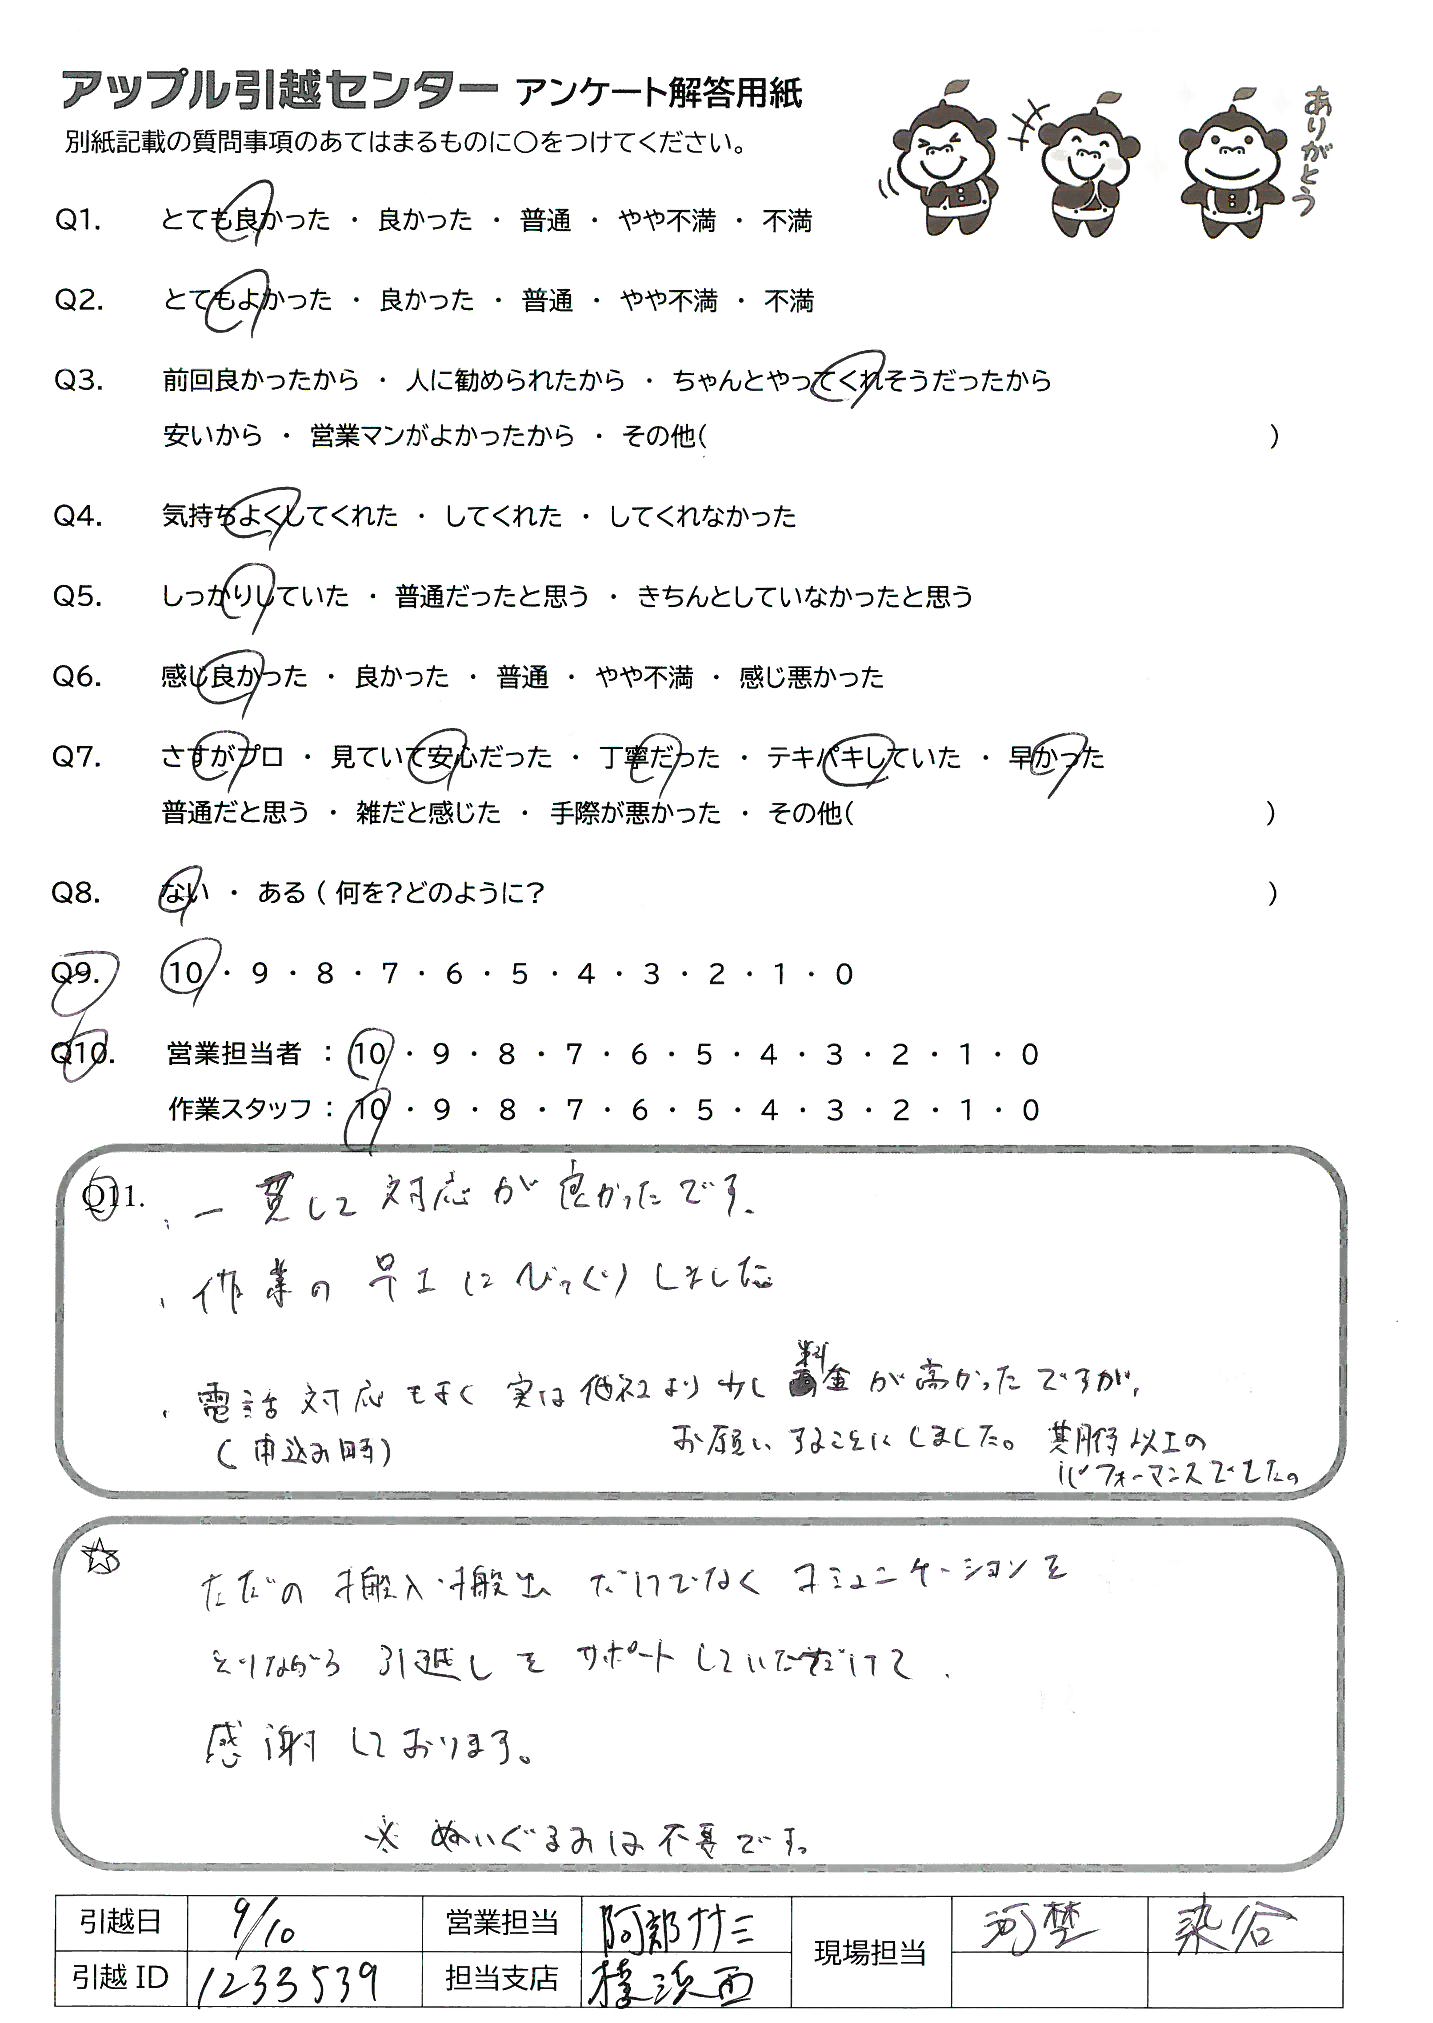 アップル引越センター アンケート解答用紙
別紙記載の質問事項のあてはまるものに○をつけてください。
ありがとう
Q1. とても良かった ・ 良かった ・ 普通 ・ やや不満 ・ 不満
Q2. とてもよかった ・ 良かった ・ 普通 ・ やや不満 ・ 不満
Q3. 前回良かったから ・ 人に勧められたから ・ ちゃんとやってくれそうだったから
安いから ・ 営業マンがよかったから ・ その他( )
Q4. 気持ちよくしてくれた ・ してくれた ・ してくれなかった
Q5. しっかりしていた ・ 普通だったと思う ・ きちんとしていなかったと思う
Q6. 感じ良かった ・ 良かった ・ 普通 ・ やや不満 ・ 感じ悪かった
Q7. さすがプロ ・ 見ていて安心だった ・ 丁寧だった ・ テキパキしていた ・ 早かった
普通だと思う ・ 雑だと感じた ・ 手際が悪かった ・ その他( )
Q8. ない ・ ある ( 何を?どのように? )
Q9. 10 ・ 9 ・ 8 ・ 7 ・ 6 ・ 5 ・ 4 ・ 3 ・ 2 ・ 1 ・ 0
Q10. 営業担当者 : 10 ・ 9 ・ 8 ・ 7 ・ 6 ・ 5 ・ 4 ・ 3 ・ 2 ・ 1 ・ 0
作業スタッフ : 10 ・ 9 ・ 8 ・ 7 ・ 6 ・ 5 ・ 4 ・ 3 ・ 2 ・ 1 ・ 0
Q11. ・一貫して対応が良かったです。
・作業の早さにびっくりしました
・電話対応もよく実は他社より少し料金が高かったですが、
(申込み時) お願いすることにしました。期待以上の
パフォーマンスでした。
☆ ただの搬入・搬出だけでなくコミュニケーションを
とりながら引越しをサポートしていただけて、
感謝しております。
※ ぬいぐるみは不要です。
引越日 9/10 営業担当 阿部 現場担当 河埜 染谷
引越ID 1233539 担当支店 横浜西